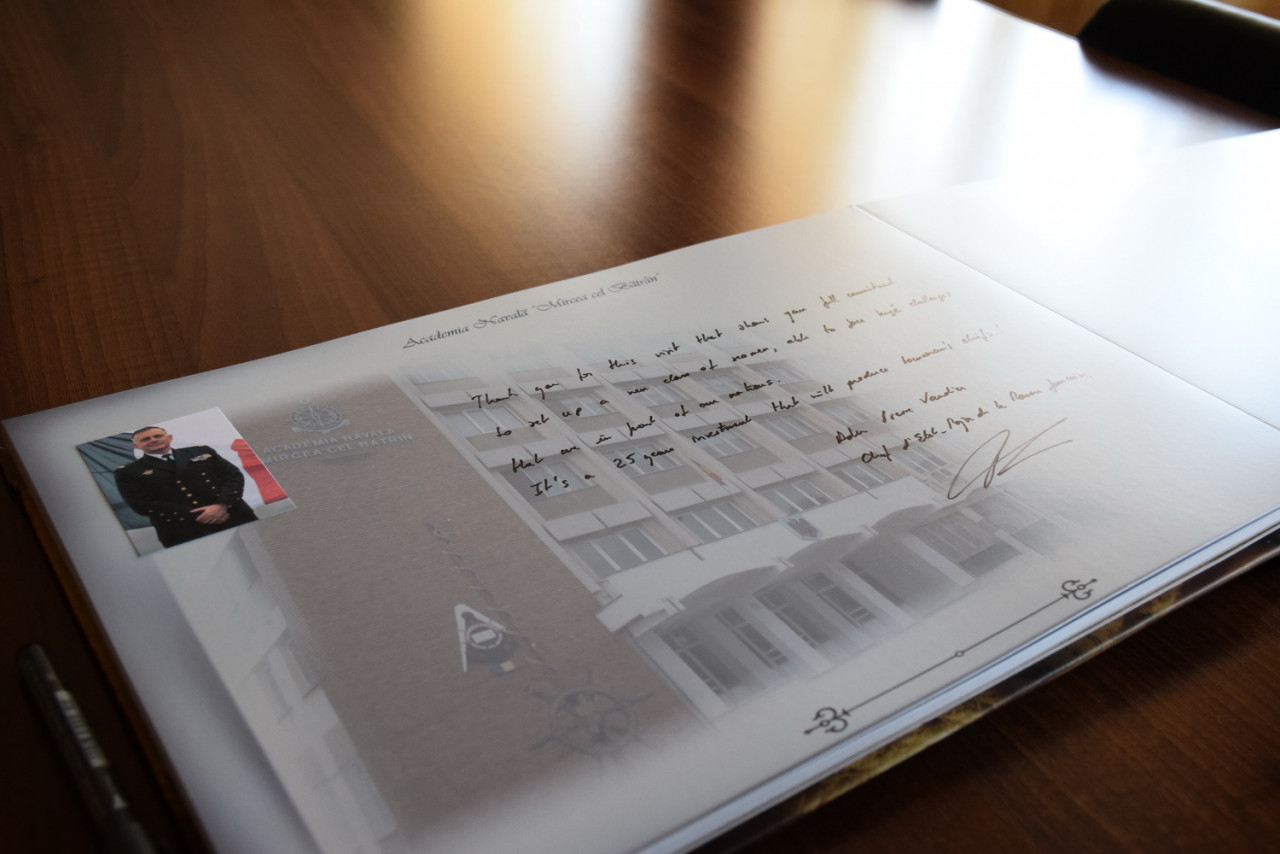 Academia Navală "Mircea cel Bătrân"
ACADEMIA NAVALĂ
MIRCEA CEL BĂTRÂN
Thank you for this visit that shows your full commitment
to set up a new class of seamen, able to face huge challenges
that are in front of our nations.
It's a 25 years investment that will produce tomorrow's chiefs!
Adm Pierre Vandier
Chef d'Etat-Major de la Marine française